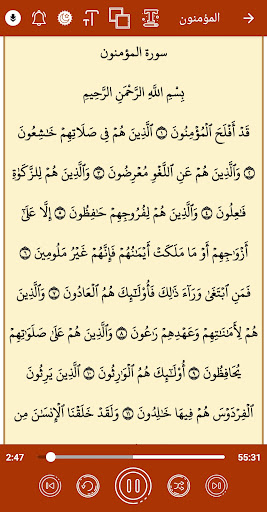 المؤمنون
سورة المؤمنون
بِسْمِ اللَّهِ الرَّحْمَٰنِ الرَّحِيمِ
قَدْ أَفْلَحَ ٱلْمُؤْمِنُونَ ۝١ ٱلَّذِينَ هُمْ فِى صَلَاتِهِمْ خَٰشِعُونَ
۝٢ وَٱلَّذِينَ هُمْ عَنِ ٱللَّغْوِ مُعْرِضُونَ ۝٣ وَٱلَّذِينَ هُمْ لِلزَّكَوٰةِ
فَٰعِلُونَ ۝٤ وَٱلَّذِينَ هُمْ لِفُرُوجِهِمْ حَٰفِظُونَ ۝٥ إِلَّا عَلَىٰٓ
أَزْوَٰجِهِمْ أَوْ مَا مَلَكَتْ أَيْمَٰنُهُمْ فَإِنَّهُمْ غَيْرُ مَلُومِينَ ۝٦
فَمَنِ ٱبْتَغَىٰ وَرَآءَ ذَٰلِكَ فَأُو۟لَٰٓئِكَ هُمُ ٱلْعَادُونَ ۝٧ وَٱلَّذِينَ
هُمْ لِأَمَٰنَٰتِهِمْ وَعَهْدِهِمْ رَٰعُونَ ۝٨ وَٱلَّذِينَ هُمْ عَلَىٰ صَلَوَٰتِهِمْ
يُحَافِظُونَ ۝٩ أُو۟لَٰٓئِكَ هُمُ ٱلْوَٰرِثُونَ ۝١٠ ٱلَّذِينَ يَرِثُونَ
ٱلْفِرْدَوْسَ هُمْ فِيهَا خَٰلِدُونَ ۝١١ وَلَقَدْ خَلَقْنَا ٱلْإِنسَٰنَ مِن
2:47 55:31